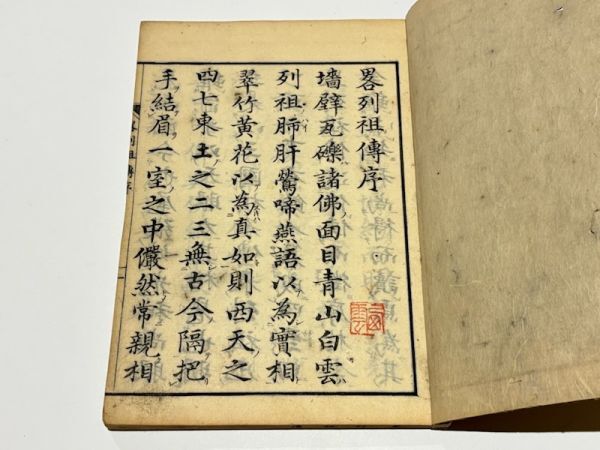 畧列祖傳序
墻壁瓦礫諸佛面目青山白雲
列祖肺肝鶯啼燕語以為實相
翠竹黃花以為真如則西天之
四七東土之二三無古今隔把
手結眉一室之中儼然常親相